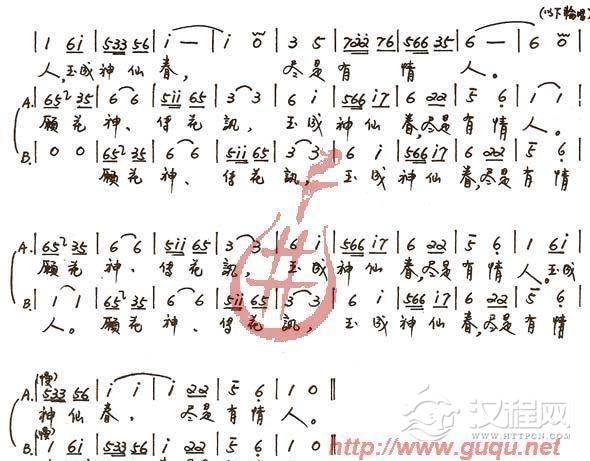 (以下輪唱)
| 1 6i | 533 56 | i — | i 0 | 3 5 | 7022 76 | 566 35 | 6 — | 6 0 |
人,玉成神仙眷, 尽是有情人。
A. | 65² 35 | 6 6 | 5ii 65 | 3 3 | 6 i | 566 i7 | 6 22 | 5 6 | 1 1 |
願花神、传花訊,玉成神仙眷,尽是有情人。
B. | 0 0 | 65² 35 | 6 6 | 5ii 65 | 3 3 | 6 i | 566 i7 | 6 22 | 5 6 |
願花神、传花訊,玉成神仙眷,尽是有情
A. | 65² 35 | 6 6 | 5ii 65 | 3 3 | 6 i | 566 i7 | 6 22 | 5 6 | 1 6i |
願花神、传花訊,玉成神仙眷,尽是有情人。玉成
B. | 1 1 | 65² 35 | 6 6 | 5ii 65 | 3 3 | 6 i | 566 i7 | 6 22 | 5 6 |
人。願花神、传花訊,玉成神仙眷,尽是有情
(慢)
A. | 533 56 | i i | i 22 | 5 6 | 1 0 ‖
神仙眷, 尽是有情人。
(慢)
B. | 1 6i | 533 56 | i i 22 | 5 6 | 1 0 ‖
汉程网
WWW.HTTPCN.COM
http://www.guqu.net